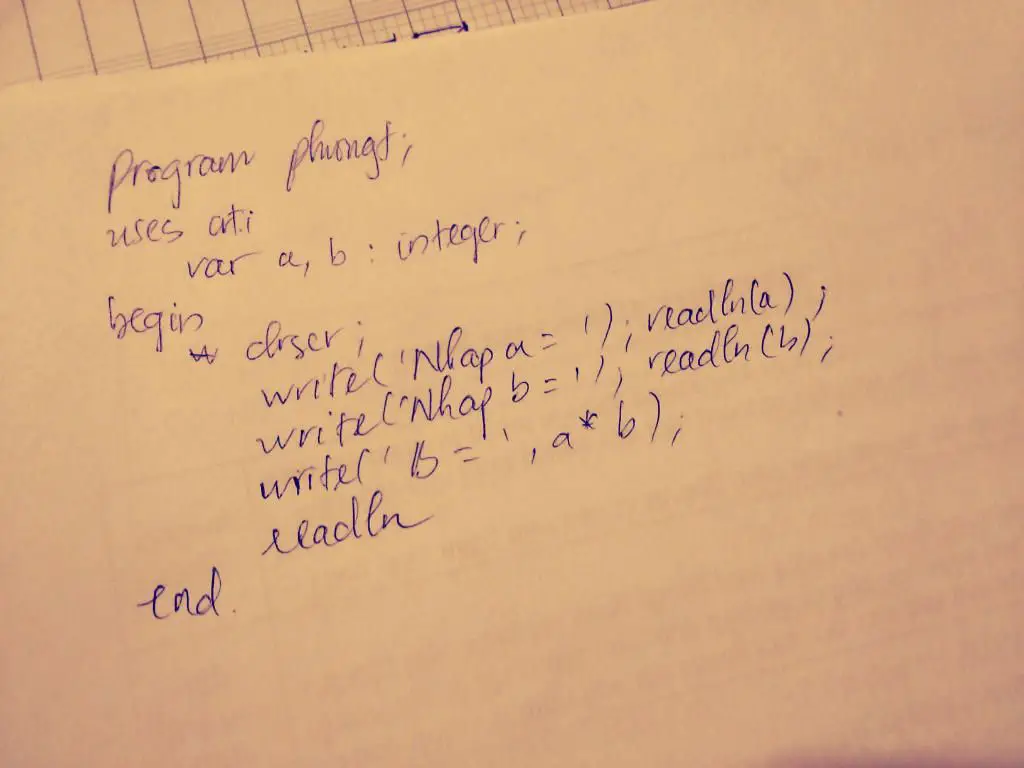 Program phuongt;
uses crt;
var a, b : integer;
begin
clrscr;
write('Nhap a = '); readln(a);
write('Nhap b = '); readln(b);
write(' = ', a * b);
readln
end.